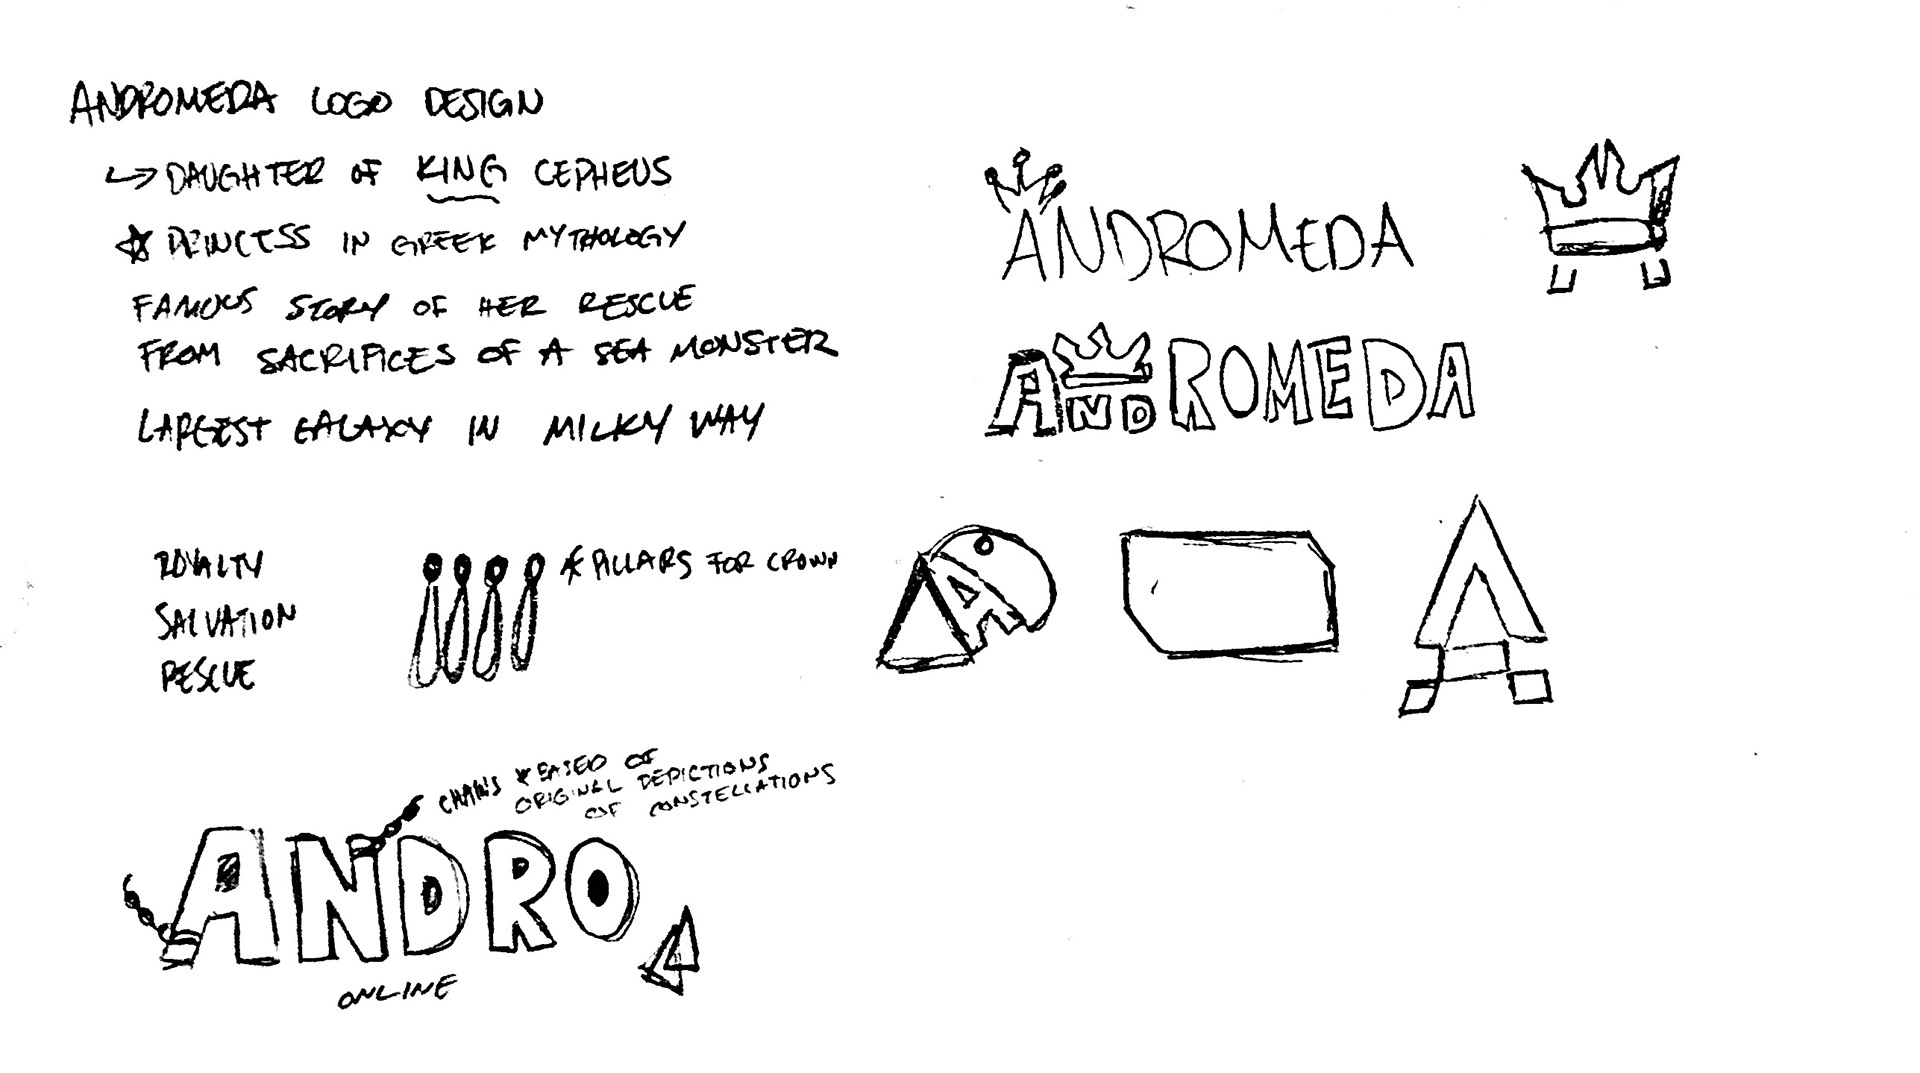 ANDROMEDA LOGO DESIGN
↳ DAUGHTER OF KING CEPHEUS
☆ PRINCESS IN GREEK MYTHOLOGY
FAMOUS STORY OF HER RESCUE
FROM SACRIFICES OF A SEA MONSTER
LARGEST GALAXY IN MILKY WAY
ANDROMEDA
ANDROMEDA
ROYALTY
SALVATION
RESCUE
* PILLARS FOR CROWN
A
A
CHAINS * BASED OF
ORIGINAL DEPICTIONS
OF CONSTELLATIONS
ANDRO
ONLINE